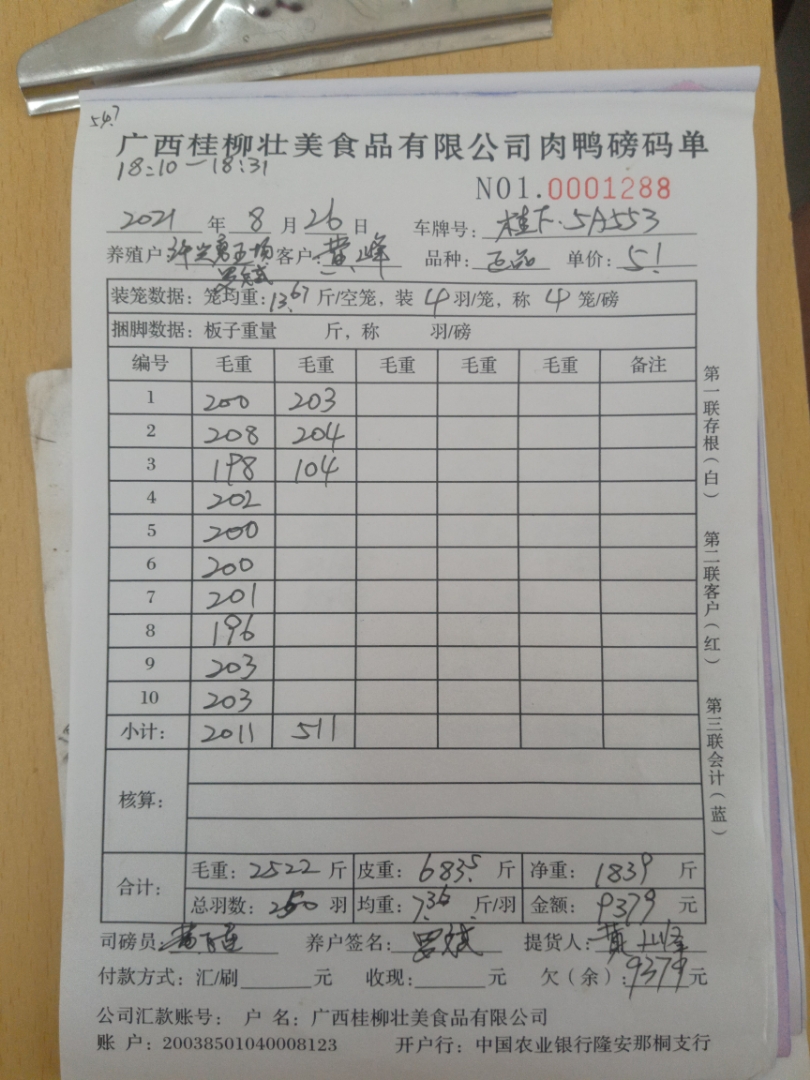 54.7
广西桂柳壮美食品有限公司肉鸭磅码单
18:10—18:31
NO1.0001288
2021 年 8 月 26 日 车牌号: 桂F·5A553
养殖户 客户: 黄上峰 品种: 正品 单价: 5.1
罗斌
装笼数据: 笼均重: 13.67 斤/空笼, 装 4 羽/笼, 称 4 笼/磅
捆脚数据: 板子重量 斤, 称 羽/磅
编号 毛重 毛重 毛重 毛重 毛重 备注
1 200 203
2 208 204
3 198 104
4 202
5 200
6 200
7 201
8 196
9 203
10 203
小计: 2011 511
核算:
合计: 毛重: 2522 斤 皮重: 683.5 斤 净重: 1839 斤
总羽数: 250 羽 均重: 7.36 斤/羽 金额: 9379 元
司磅员 养户签名: 罗斌 提货人: 黄上峰
付款方式: 汇/刷 元 收现: 元 欠(余): 9379 元
公司汇款账号: 户 名: 广西桂柳壮美食品有限公司
账 户: 20038501040008123 开户行: 中国农业银行隆安那桐支行
第一联存根(白) 第二联客户(红) 第三联会计(蓝)